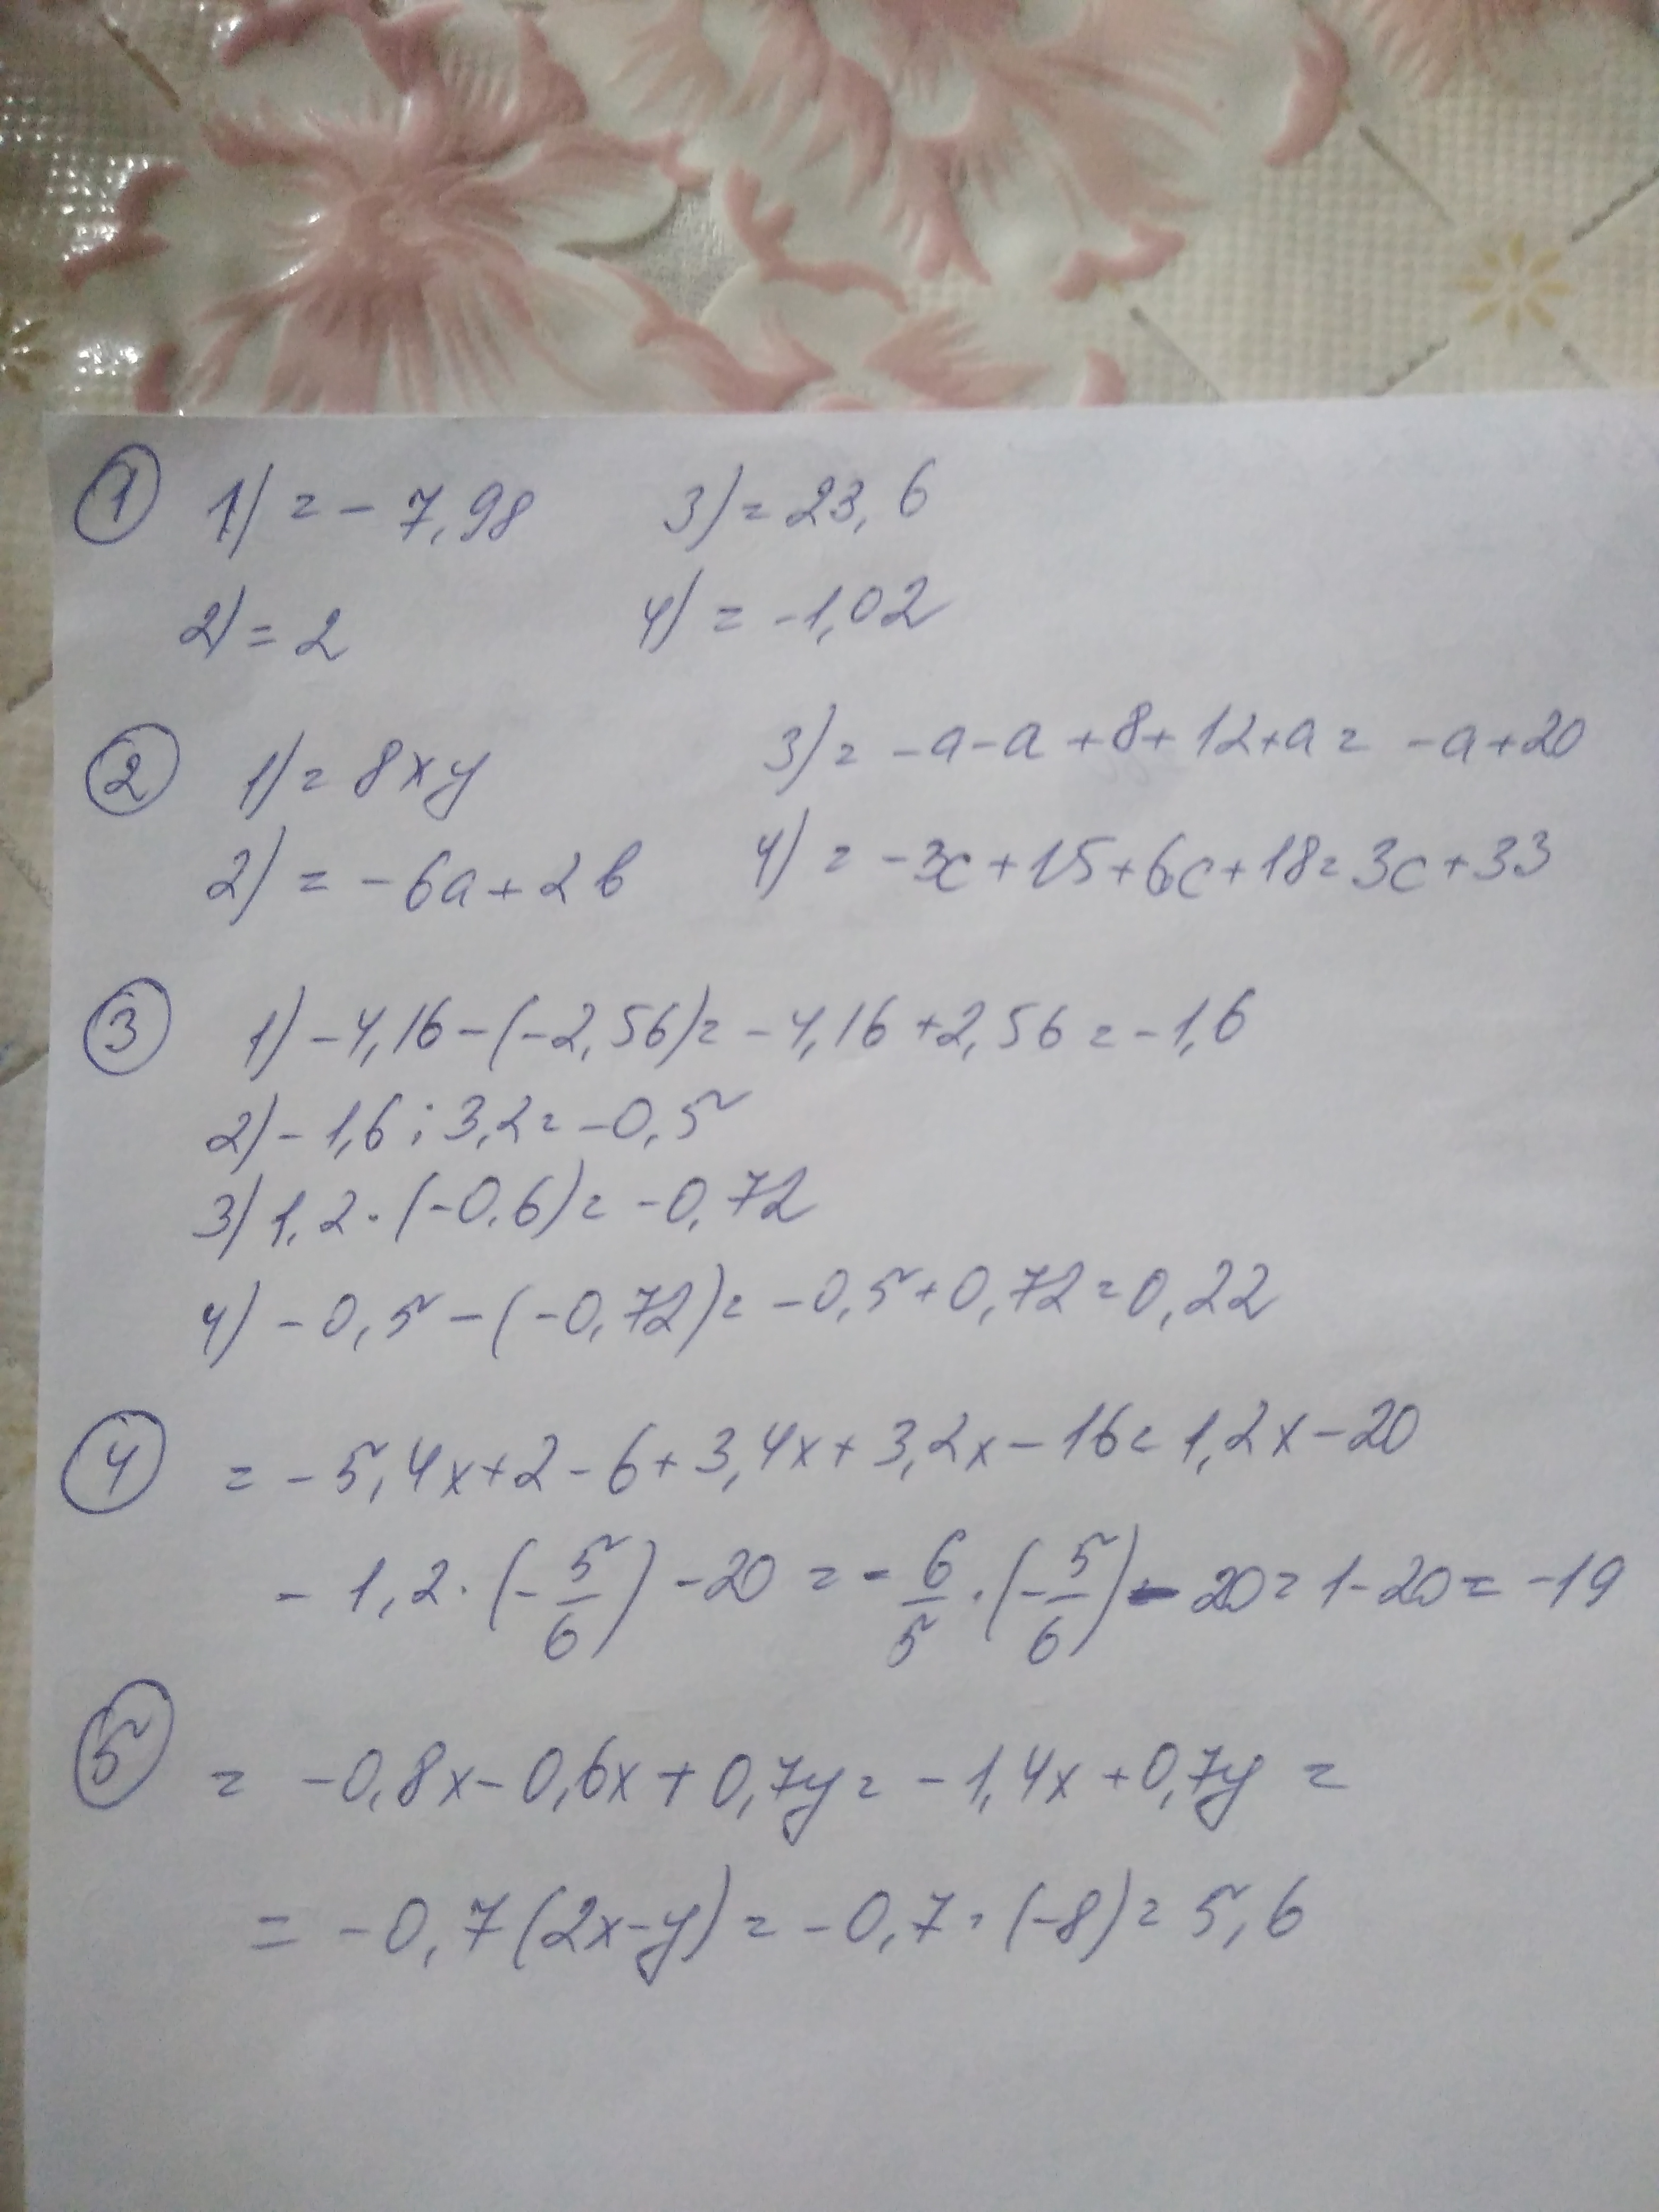 ① 1) = - 7,98 3) = 23,6
2) = 2 4) = -1,02
② 1) = 8xy 3) = -a-a+8+12+a = -a+20
2) = -6a+2b 4) = -3c+15+6c+18=3c+33
③ 1) -4,16-(-2,56)= -4,16+2,56=-1,6
2) -1,6:3,2=-0,5
3) 1,2·(-0,6)= -0,72
4) -0,5-(-0,72)= -0,5+0,72=0,22
④ = -5,4x+2-6+3,4x+3,2x-16=1,2x-20
- 1,2·(-5/6)-20 = - 6/5·(-5/6)-20=1-20=-19
⑤ = -0,8x-0,6x+0,7y=-1,4x+0,7y =
= -0,7(2x-y)=-0,7·(-8)=5,6